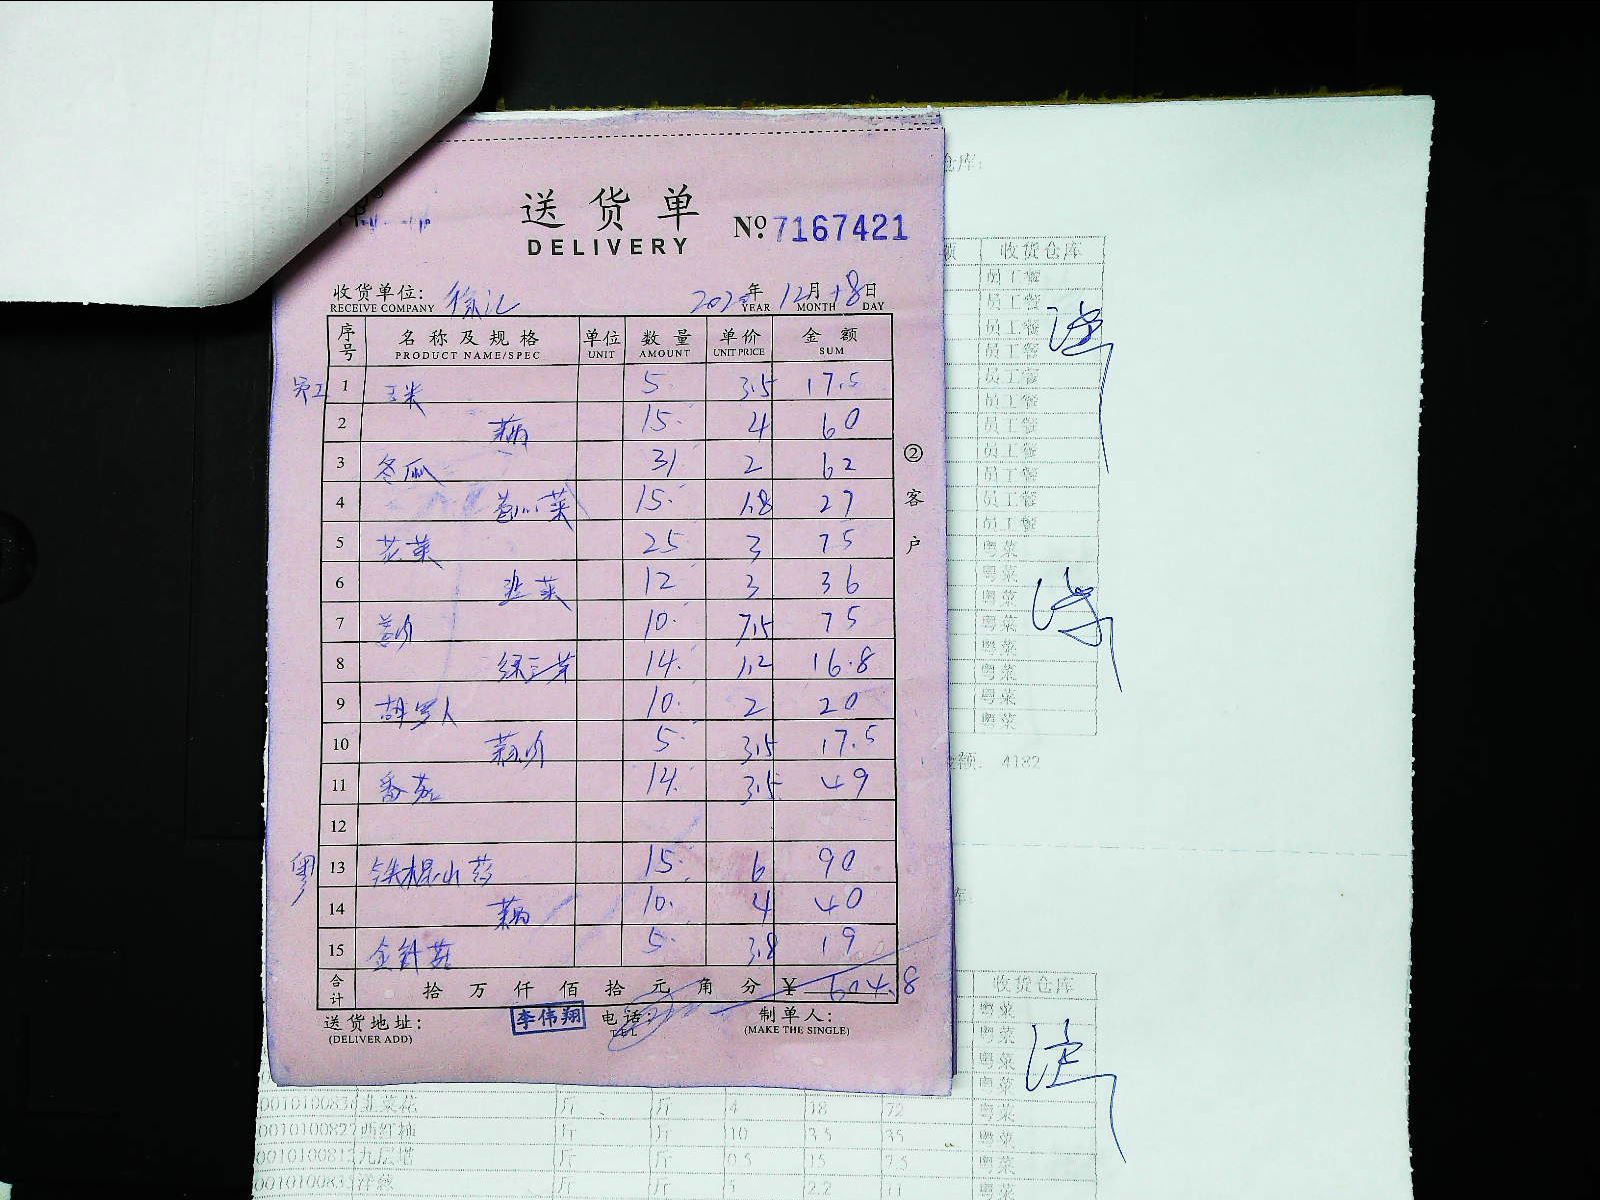 送货单
DELIVERY
No. 7167421
收货单位: 徐汇
RECEIVE COMPANY
年 12月 18日
YEAR MONTH DAY
序号 名称及规格 单位 数量 单价 金额
PRODUCT NAME/SPEC UNIT AMOUNT UNIT PRICE SUM
员工 1 玉米 5. 3.5 17.5
2 藕 15. 4 60
3 冬瓜 31 2 62
4 菜 15. 1.8 27
5 花菜 25 3 75
6 韭菜 12 3 36
7 10. 7.5 75
8 绿豆芽 14. 1.2 16.8
9 胡罗卜 10. 2 20
10 5. 3.5 17.5
11 番茄 14. 3.5 49
12
粤 13 铁棍山药 15. 6 90
14 藕 10. 4 40
15 金针菇 5. 3.8 19
合计 拾 万 仟 佰 拾 元 角 分 ¥ 604.8
送货地址: 李伟翔 电话: 制单人:
(DELIVER ADD) TEL (MAKE THE SINGLE)
②客户
仓库:
额 收货仓库
员工餐
员工餐
员工餐
员工餐
员工餐
员工餐
员工餐
员工餐
员工餐
员工餐
员工餐
粤菜
粤菜
粤菜
粤菜
粤菜
粤菜
粤菜
粤菜
金额: 4182
收货仓库
粤菜
粤菜
粤菜
粤菜
韭菜花 斤 斤 4 18 72 粤菜
西红柿 斤 斤 10 3.5 35 粤菜
九层塔 斤 斤 0.5 15 7.5 粤菜
斤 斤 5 2.2 11 粤菜